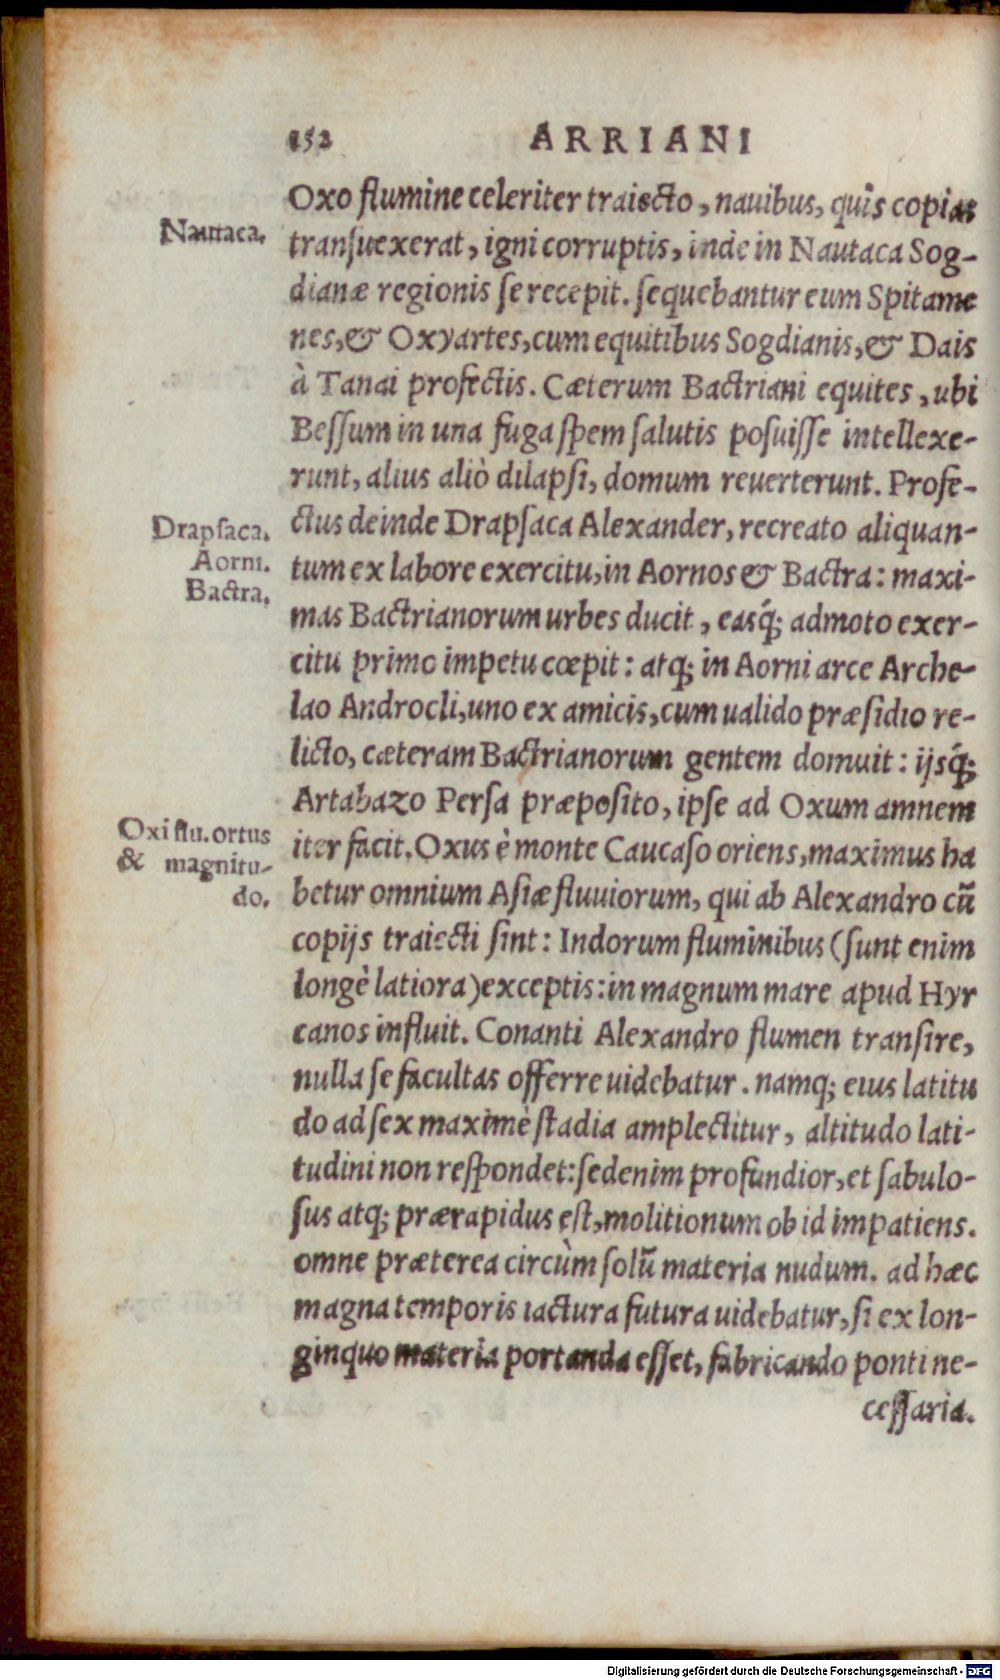 152
ARRIANI
Oxo flumine celeriter traiecto, nauibus, quîs copias
Nautaca.
transuexerat, igni corruptis, inde in Nautaca Sog-
dianæ regionis se recepit. sequebantur eum Spitame
nes, & Oxyartes, cum equitibus Sogdianis, & Dais
à Tanai profectis. Cæterum Bactriani equites, ubi
Bessum in una fuga spem salutis posuisse intellexe-
runt, alius aliò dilapsi, domum reuerterunt. Profe-
Drapsaca.
ctus deinde Drapsaca Alexander, recreato aliquan-
Aorni.
tum ex labore exercitu, in Aornos & Bactra: maxi-
Bactra.
mas Bactrianorum urbes ducit, easq́; admoto exer-
citu primo impetu cœpit: atq; in Aorni arce Arche-
lao Androcli, uno ex amicis, cum ualido præsidio re-
licto, cæteram Bactrianorum gentem domuit: ijsq́;
Artabazo Persa præposito, ipse ad Oxum amnem
Oxi flu. ortus
iter facit. Oxus è monte Caucaso oriens, maximus ha
& magnitu-
do.
betur omnium Asiæ fluuiorum, qui ab Alexandro cũ
copijs traiecti sint: Indorum fluminibus (sunt enim
longè latiora) exceptis: in magnum mare apud Hyr
canos influit. Conanti Alexandro flumen transire,
nulla se facultas offerre uidebatur. namq; eius latitu
do ad sex maximè stadia amplectitur, altitudo lati-
tudini non respondet: sed enim profundior, et sabulo-
sus atq; prærapidus est, molitionum ob id impatiens.
omne præterea circùm solũ materia nudum. ad hæc
magna temporis iactura futura uidebatur, si ex lon-
ginquo materia portanda esset, fabricando ponti ne-
cessaria.
Digitalisierung gefördert durch die Deutsche Forschungsgemeinschaft - DFG